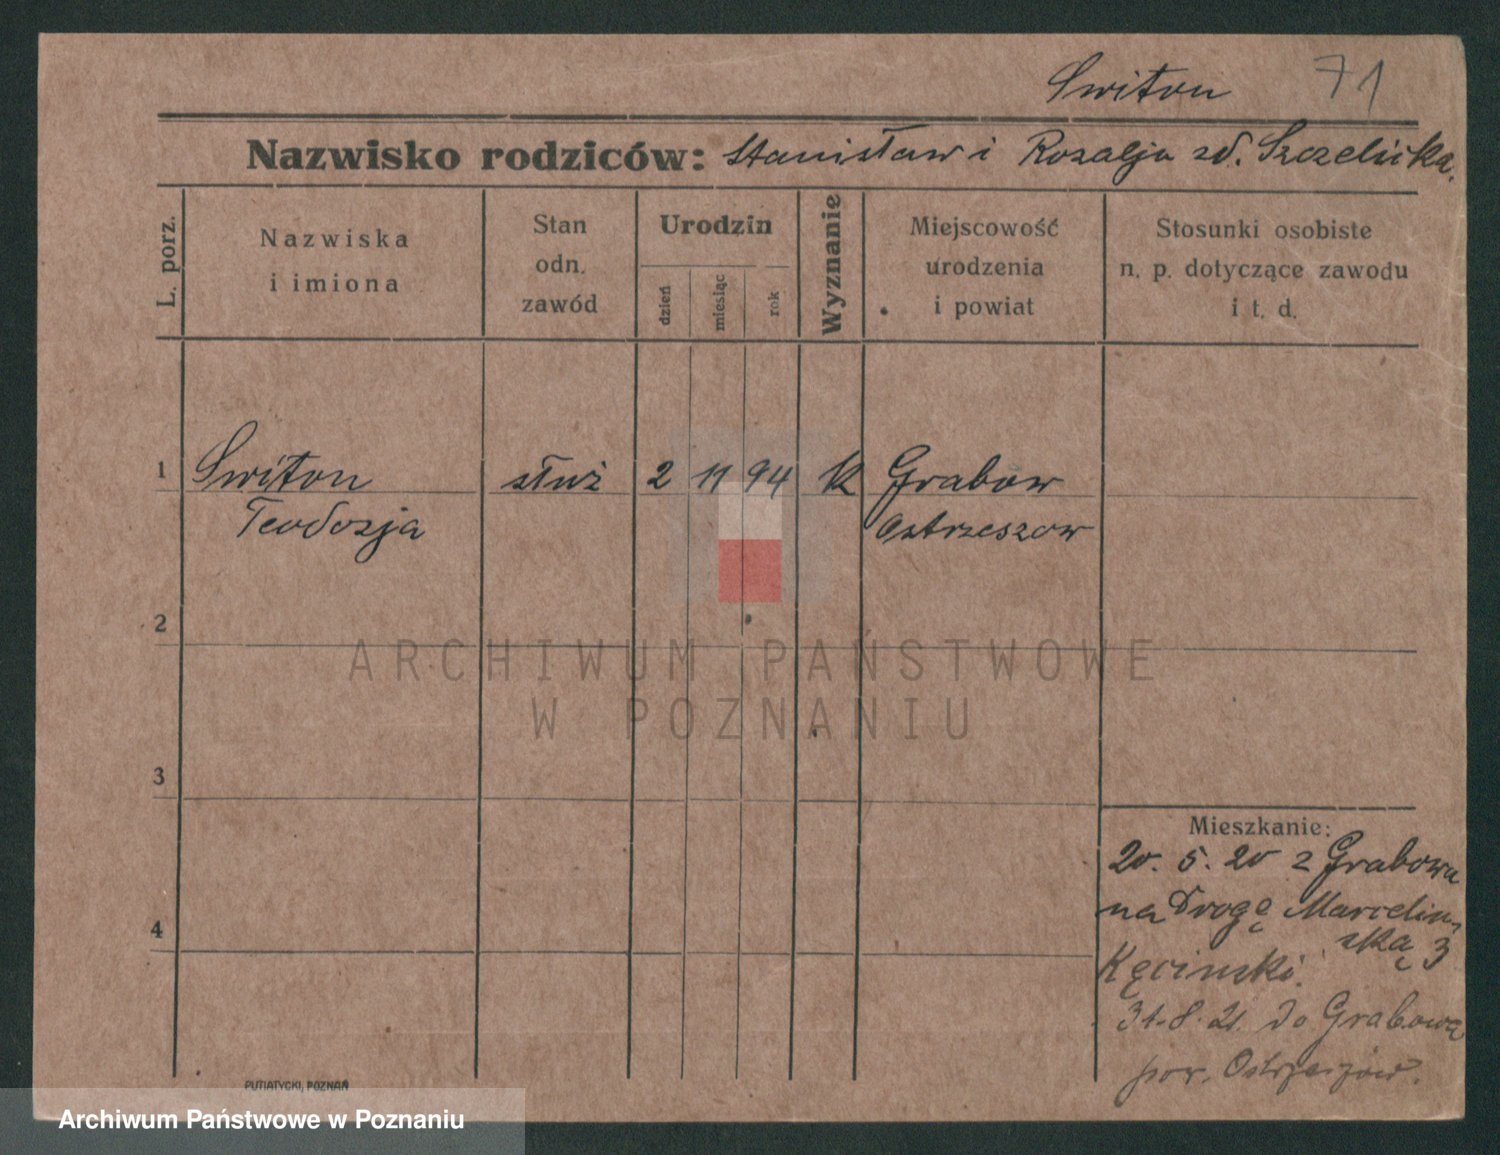 Switon 71
Nazwisko rodziców: Stanisław i Rozalja zd. Szczelicka.
L. porz.
Nazwiska
i imiona
Stan
odn.
zawód
Urodzin
dzień
miesiąc
rok
Wyznanie
Miejscowość
urodzenia
i powiat
Stosunki osobiste
n. p. dotyczące zawodu
i t. d.
1 Switon służ 2 11 94 k Grabow
Teodozja Ostrzeszow
2
ARCHIWUM PAŃSTWOWE
W POZNANIU
3
Mieszkanie:
20. 5. 20 z Grabowa
na Drogę Marcelin-
4
ską 3
Kęcinski.
31. 8. 21. do Grabowa
pow. Ostrzeszów.
PUTIATYCKI, POZNAŃ
Archiwum Państwowe w Poznaniu